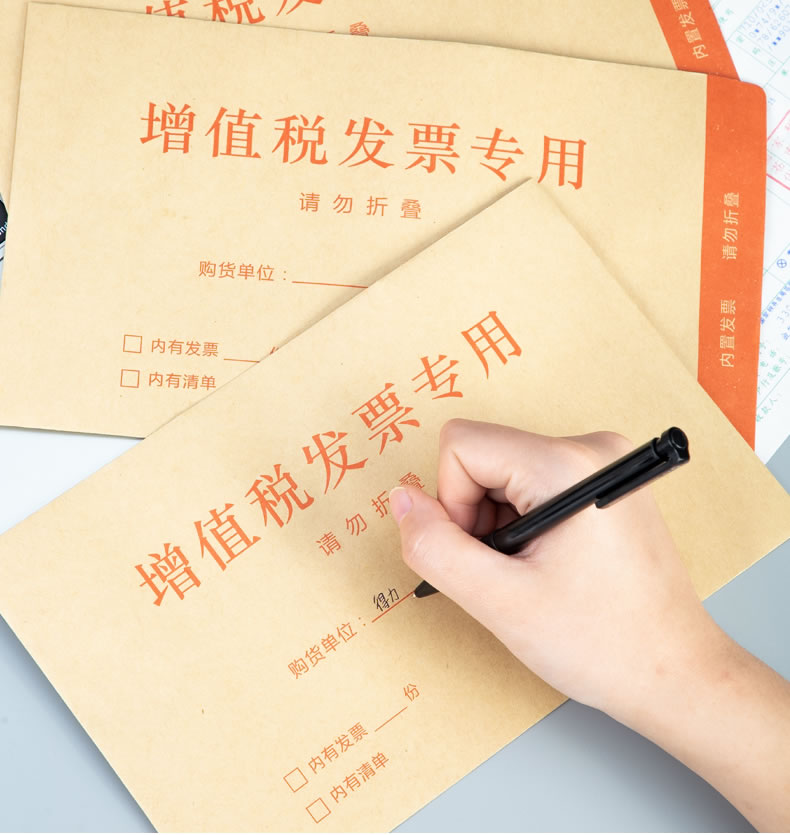 增值税发
请勿折叠
内置发票
增值税发票专用
请勿折叠
购货单位：
内有发票 份
内有清单
内置发票 请勿折叠
增值税发票专用
请勿折叠
购货单位：得力
内有发票 份
内有清单
收款人：